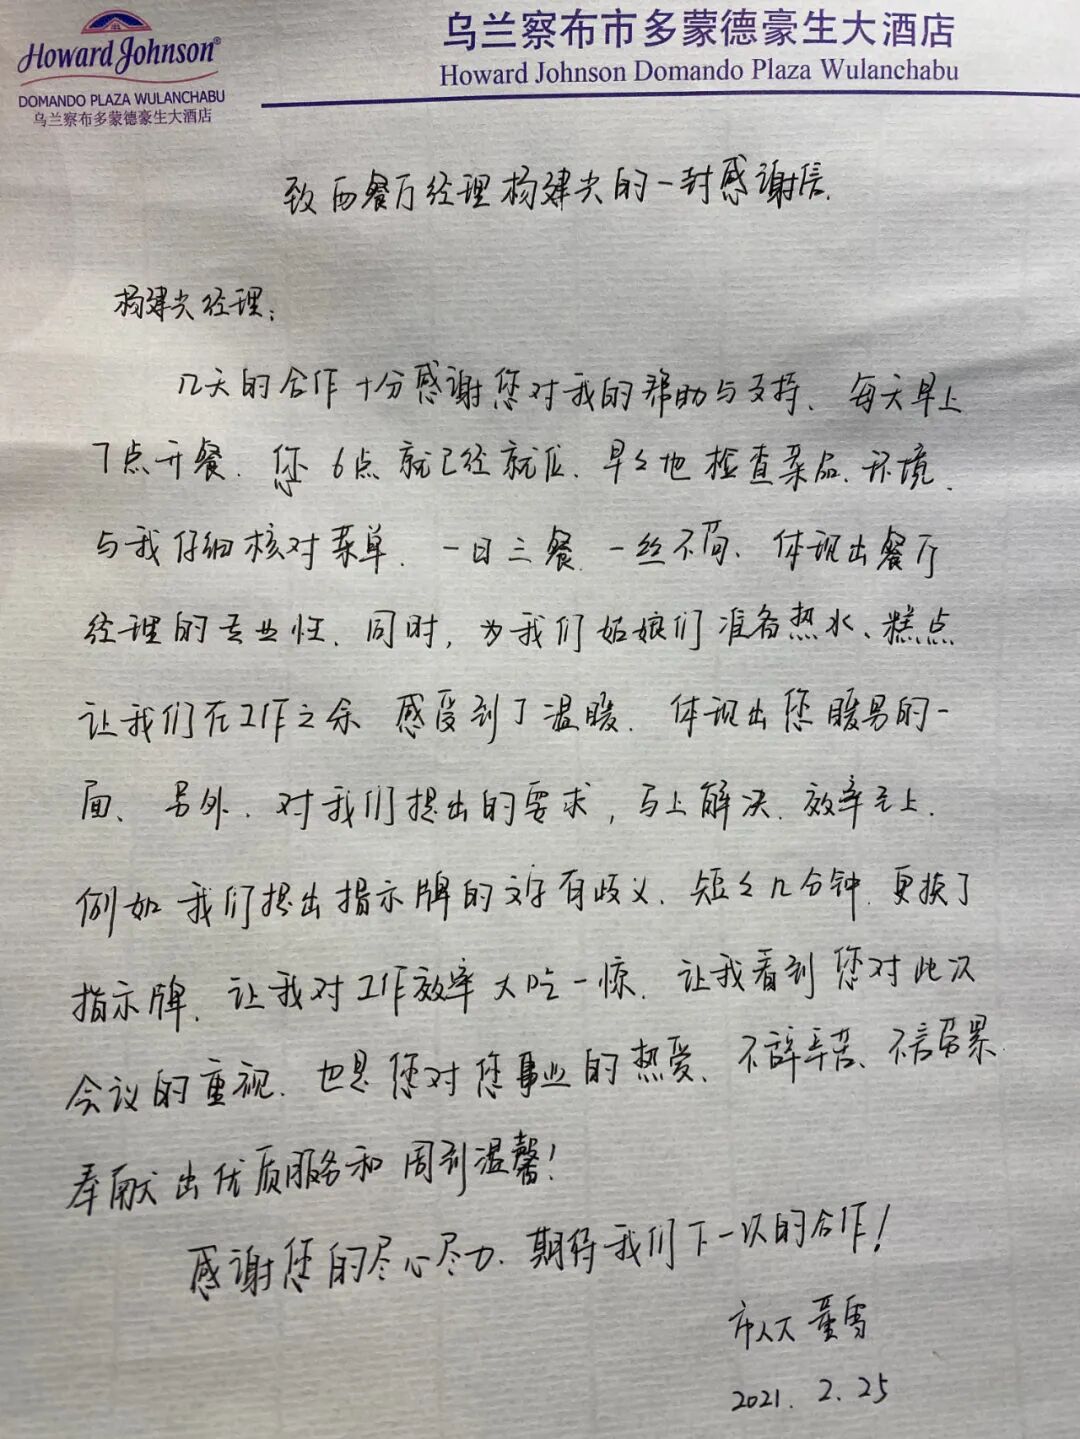 Howard Johnson®
DOMANDO PLAZA WULANCHABU
乌兰察布多蒙德豪生大酒店
乌兰察布市多蒙德豪生大酒店
Howard Johnson Domando Plaza Wulanchabu
致西餐厅经理杨建光的一封感谢信.
杨建光经理:
几天的合作十分感谢您对我的帮助与支持、每天早上
7点开餐、您6点就已经就位、早々地检查菜品、环境、
与我仔细核对菜单、一日三餐、一丝不苟、体现出餐厅
经理的专业性、同时,为我们姑娘们准备热水、糕点
让我们在工作之余 感受到了温暖、体现出您暖男的一
面、另外、对我们提出的要求,马上解决、效率至上.
例如我们提出指示牌的文字有歧义、短々几分钟、更换了
指示牌、让我对工作效率大吃一惊、让我看到您对此次
会议的重视、也是您对您事业的热爱、不辞辛苦、不言劳累
奉献出优质服务和周到温馨!
感谢您的尽心尽力、期待我们下一次的合作!
市人大 董雪
2021. 2. 25